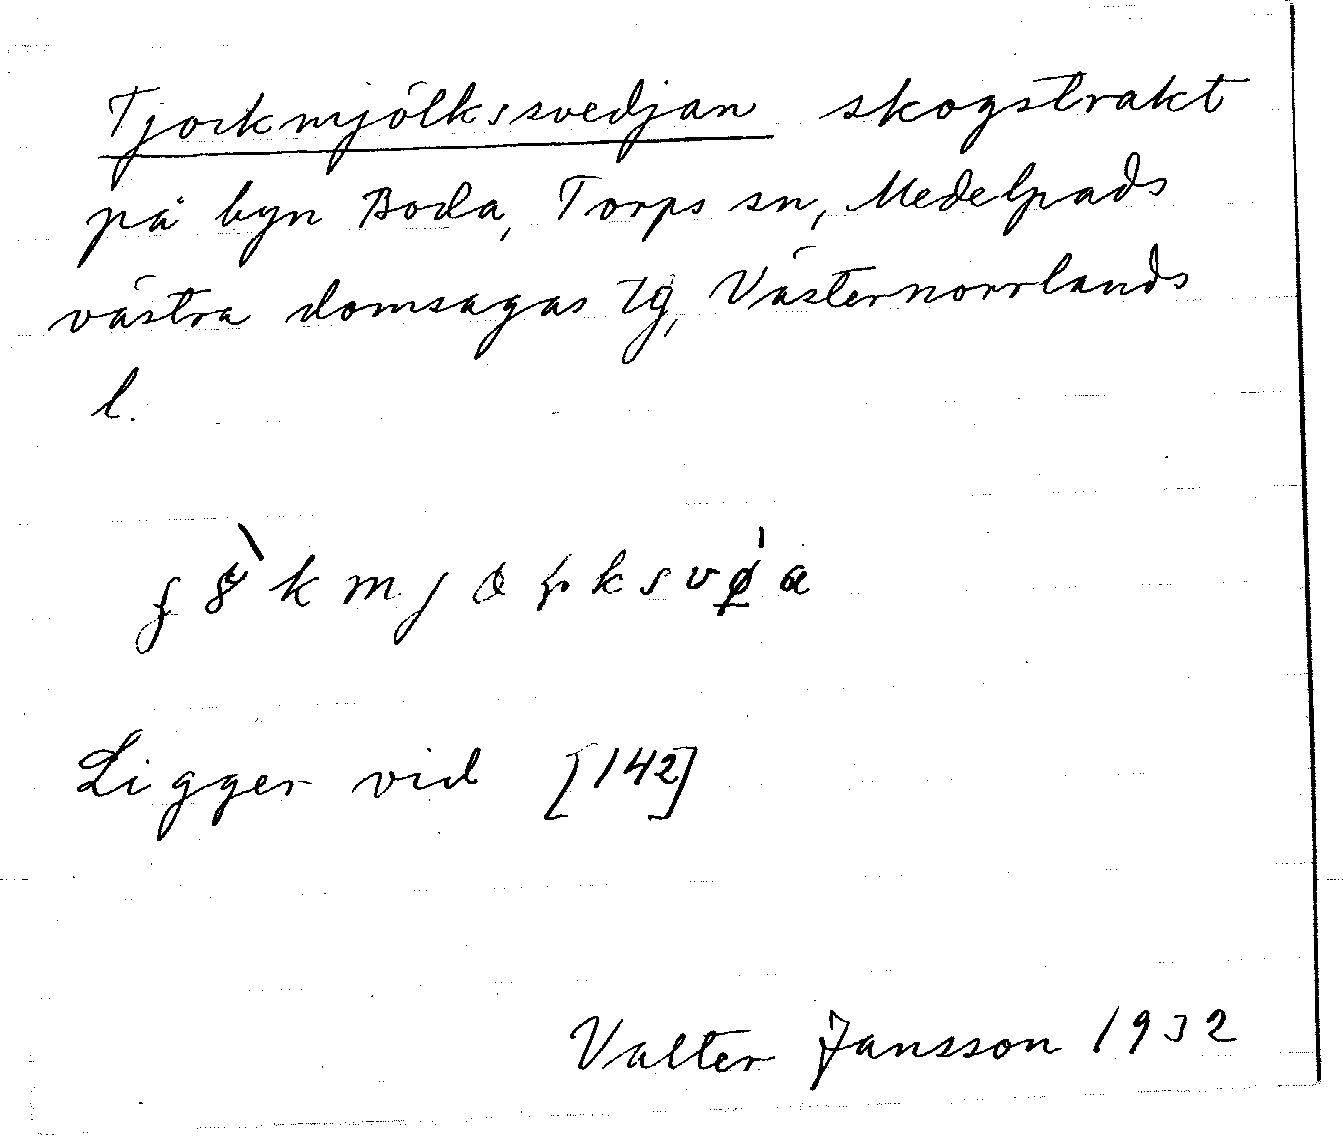 Tjockmjölkssvedjan skogstrakt
på byn Boda, Torps sn, Medelpads
västra domsagas tg, Västernorrlands
l.
Ligger vid [142]
Valter Jansson 1932